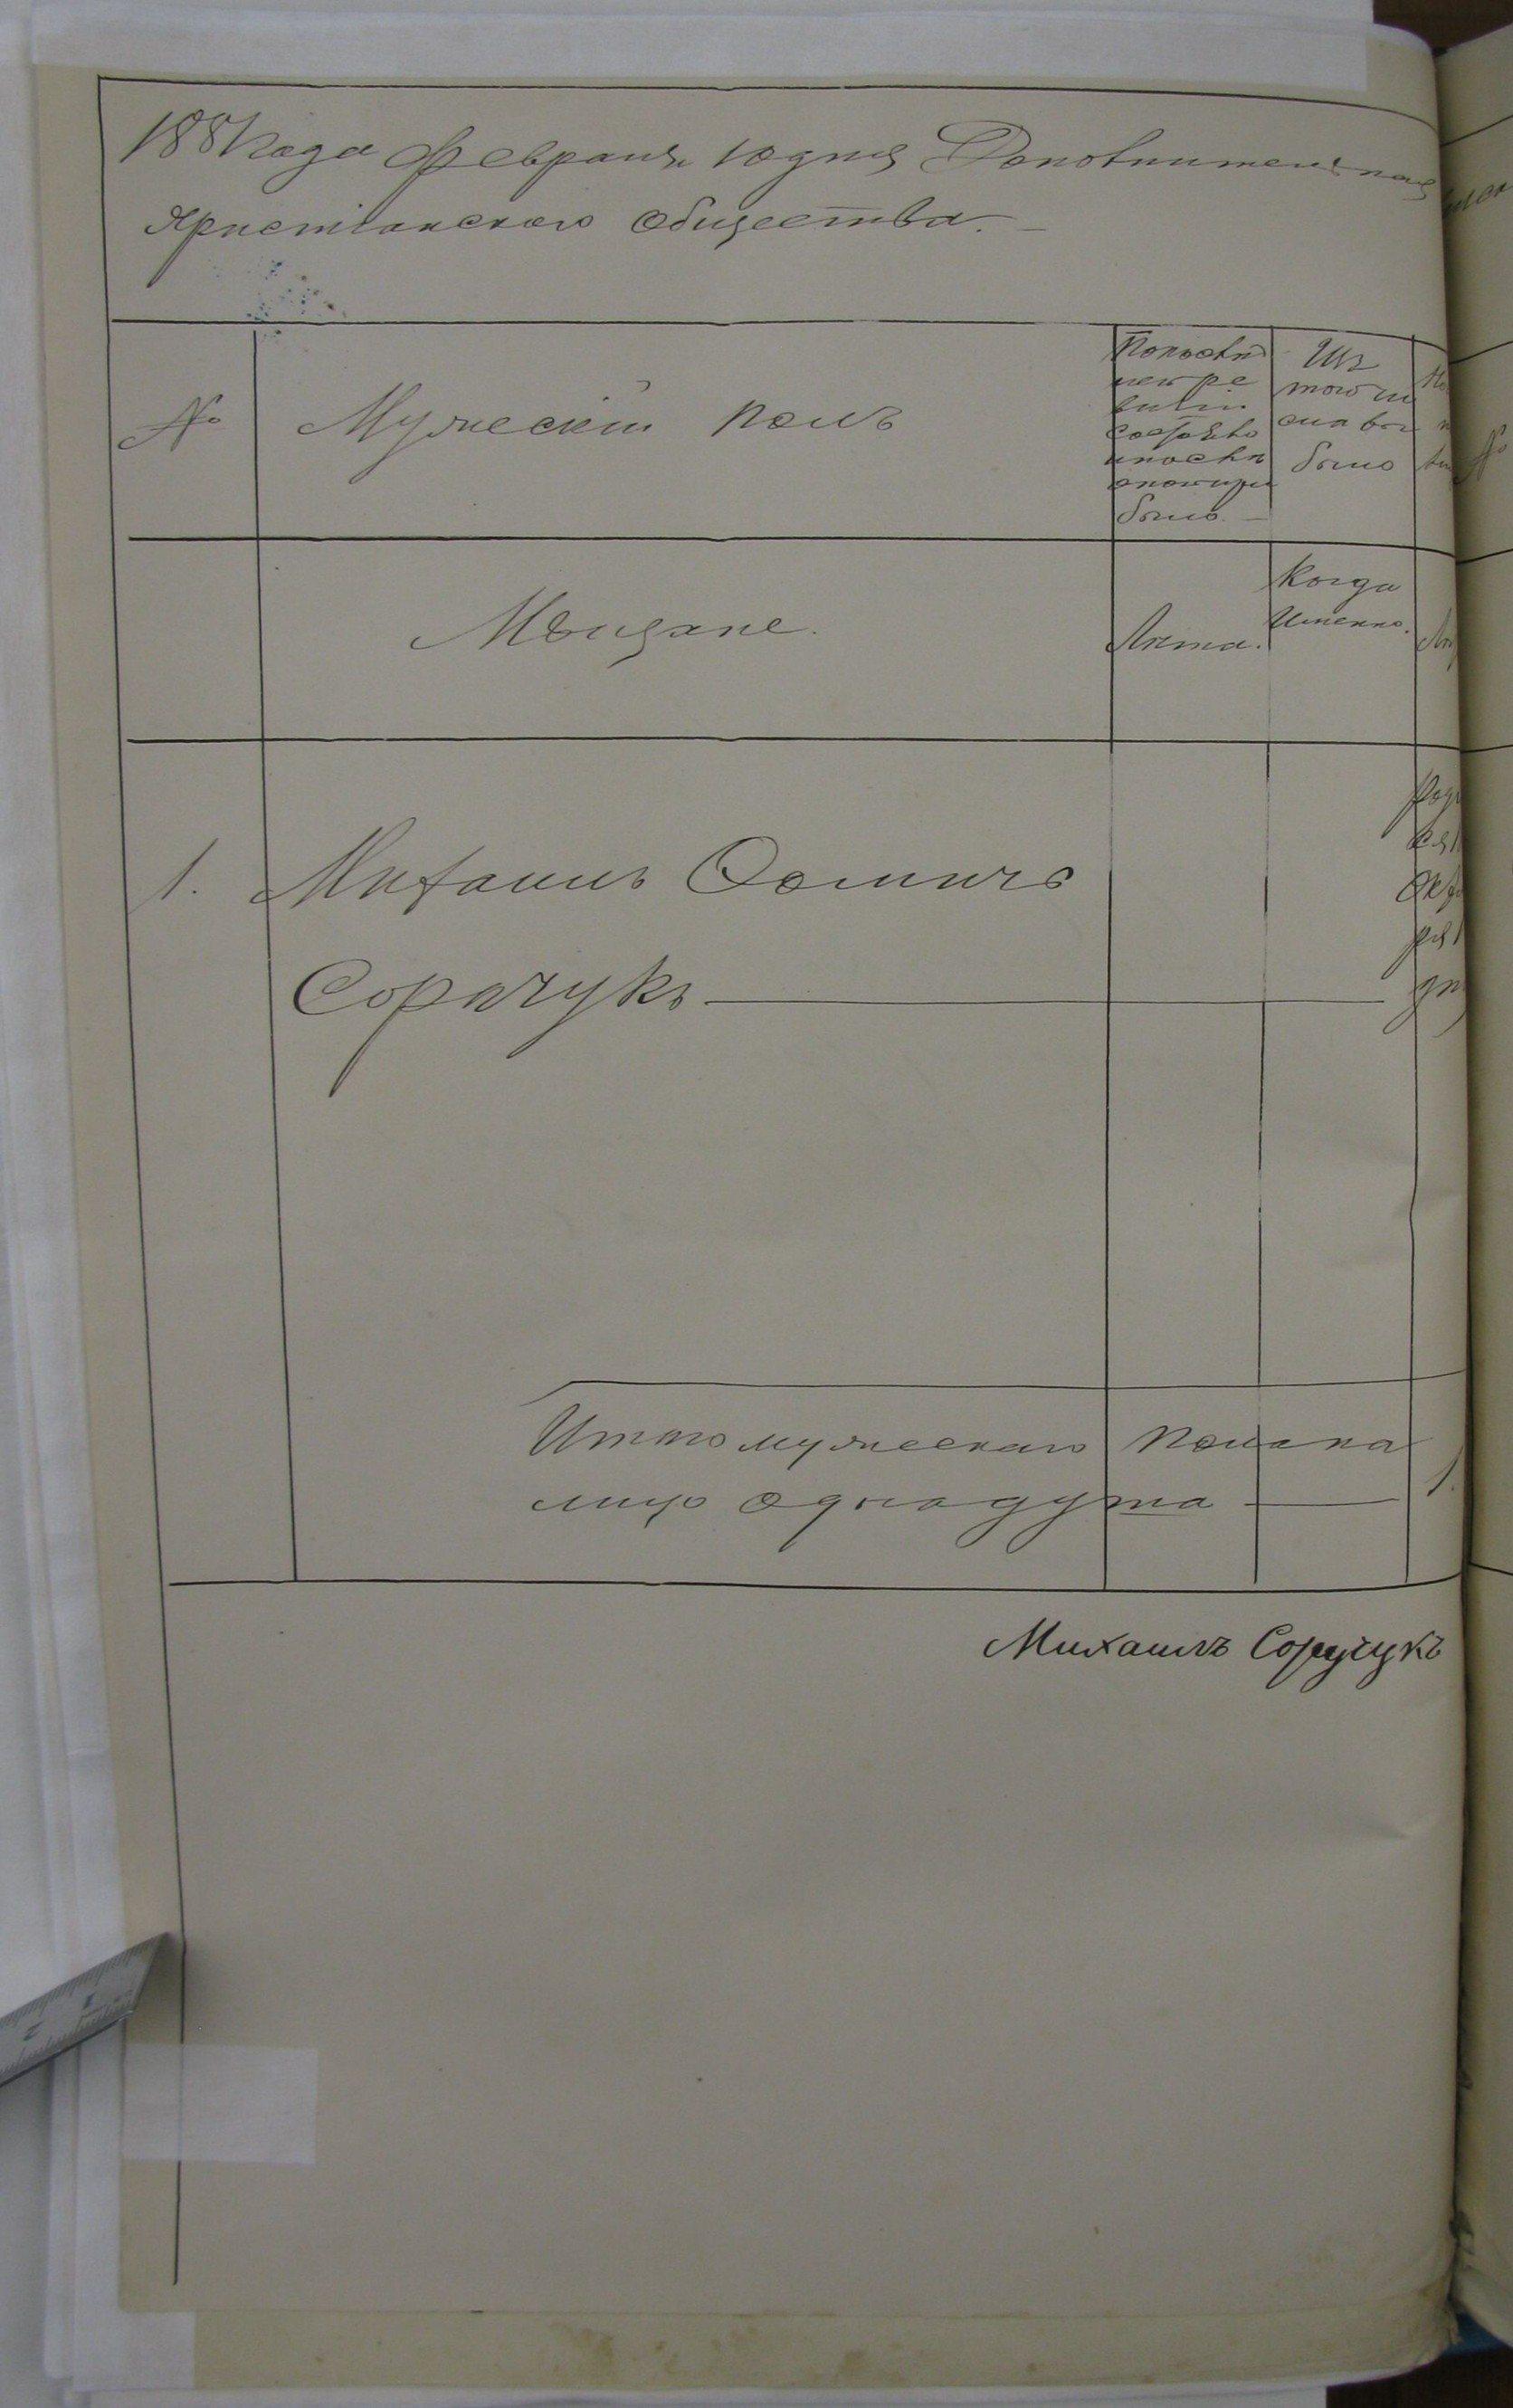 1881 года февраля 10 дня Дополнительная
Христіанского общества.
№
Мужескій полъ
По послѣд
ней ре
визіи
состояло
и послѣ
оной при
было.
Изъ
того чи
сла вы
было
Мѣщане.
Лѣта.
Когда
Именно.
1.
Михаилъ Ѳомичъ
Сорочукъ
Итого мужескаго пола на
лицо одна душа
1.
Михаилъ Сорочукъ